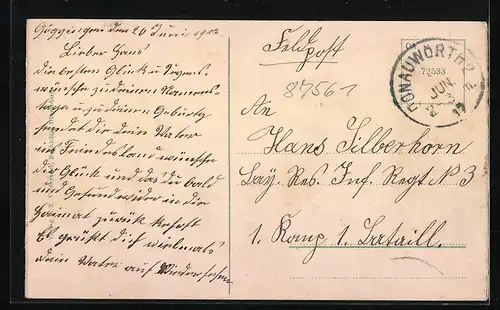 Göggingen den 20 Juni 1917
Lieber Hans
die besten Glück u Segens-
wünsche zu deinem Namens-
tage u zu deinem Geburtz
sendet dir dein Vater
ins Feindesland wünsche
dir Glück und das du bald
und Gesund wider in die
Haimat zurük kehrst
Es grüßt dich vielmals
dein Vater auf Wiedersehen
Feldpost
87561
72583
DONAUWÖRTH
JUN.
An
Hans Silberhorn
Bay. Res. Inf. Regt N 3
1. Komp 1. Bataill.